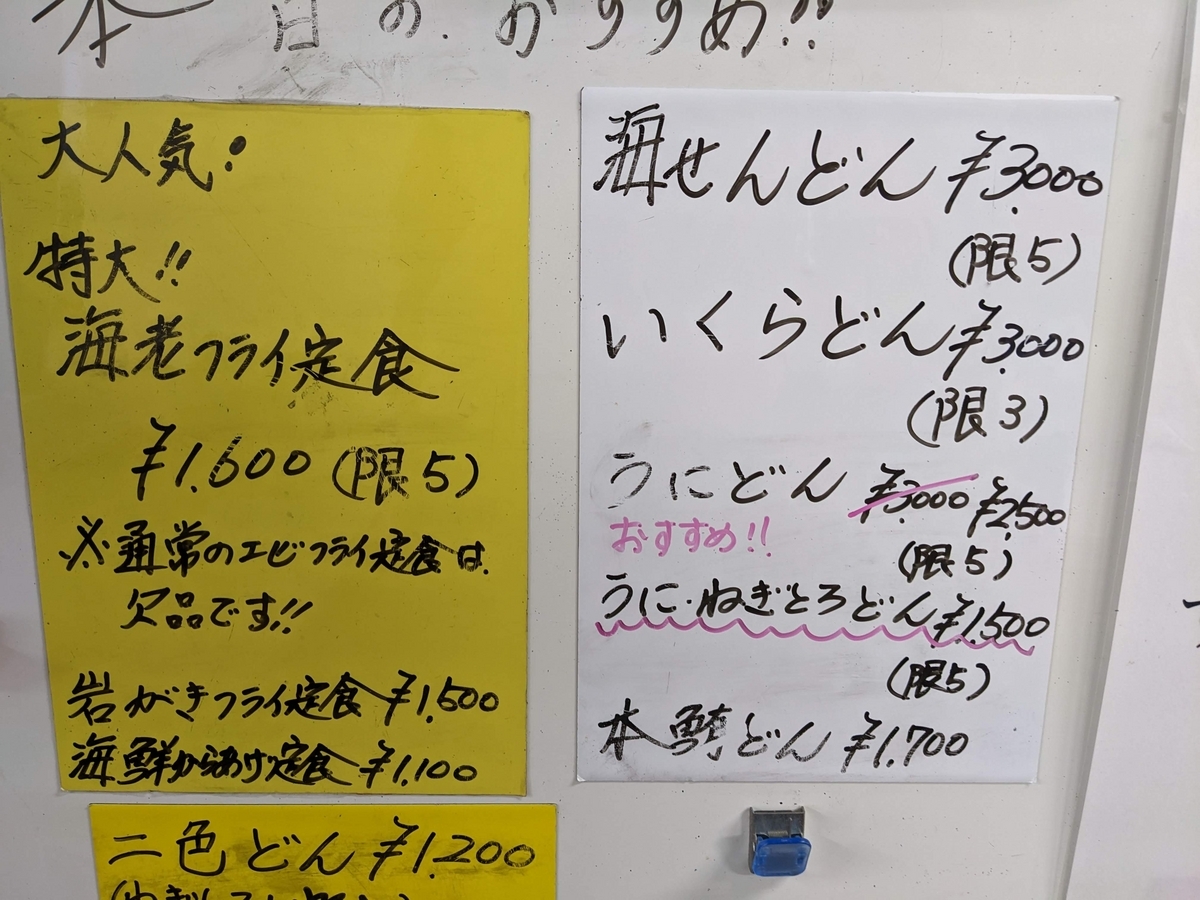 本日のおすすめ!!
大人気!
特大!!
海老フライ定食
¥1,600(限5)
※通常のエビフライ定食は
欠品です!!
岩がきフライ定食 ¥1,500
海鮮からあげ定食 ¥1,100
二色どん ¥1,200
海せんどん ¥3,000
(限5)
いくらどん ¥3,000
(限3)
うにどん ¥3,000 ¥2,500
おすすめ!! (限5)
うに・ねぎとろどん ¥1,500
(限5)
本鮪どん ¥1,700